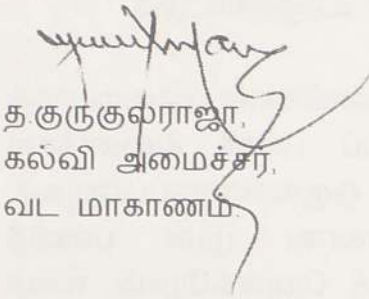 த.குருகுலராஜா,
கல்வி அமைச்சர்,
வட மாகாணம்.